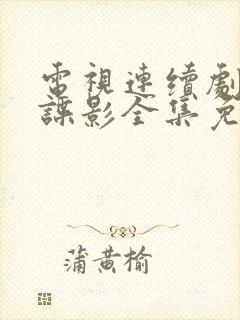 電視連續劇
諜影全集免
蒲黄榆